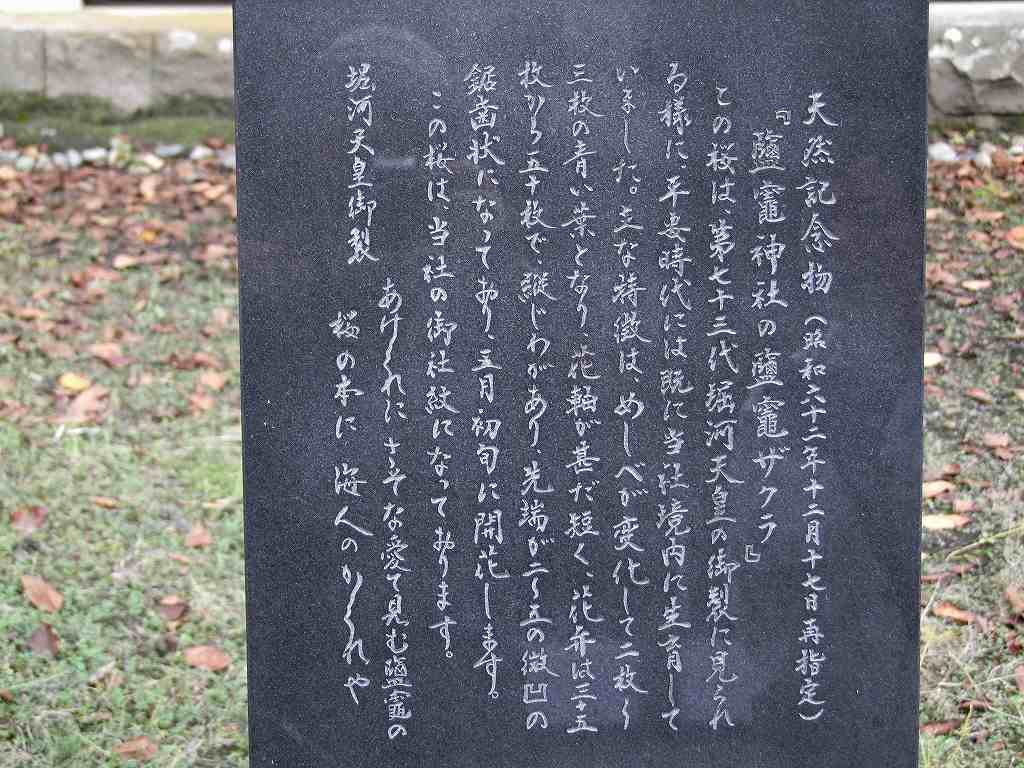 天然記念物(昭和六十二年十二月十七日再指定)
『鹽竈神社の鹽竈ザクラ』
この桜は、第七十三代堀河天皇の御製に見られ
る様に、平安時代には既に当社境内に生育して
いました。主な特徴は、めしべが変化して二枚〜
三枚の青い葉となり、花軸が甚だ短く、花弁は三十五
枚から五十枚で、縦じわがあり、先端が二〜五の微凹の
鋸歯状になっており、五月初旬に開花します。
この桜は、当社の御社紋になっております。
堀河天皇御製
あけくれに さそな愛て見む鹽竈の
桜の本に 海人のかくれや